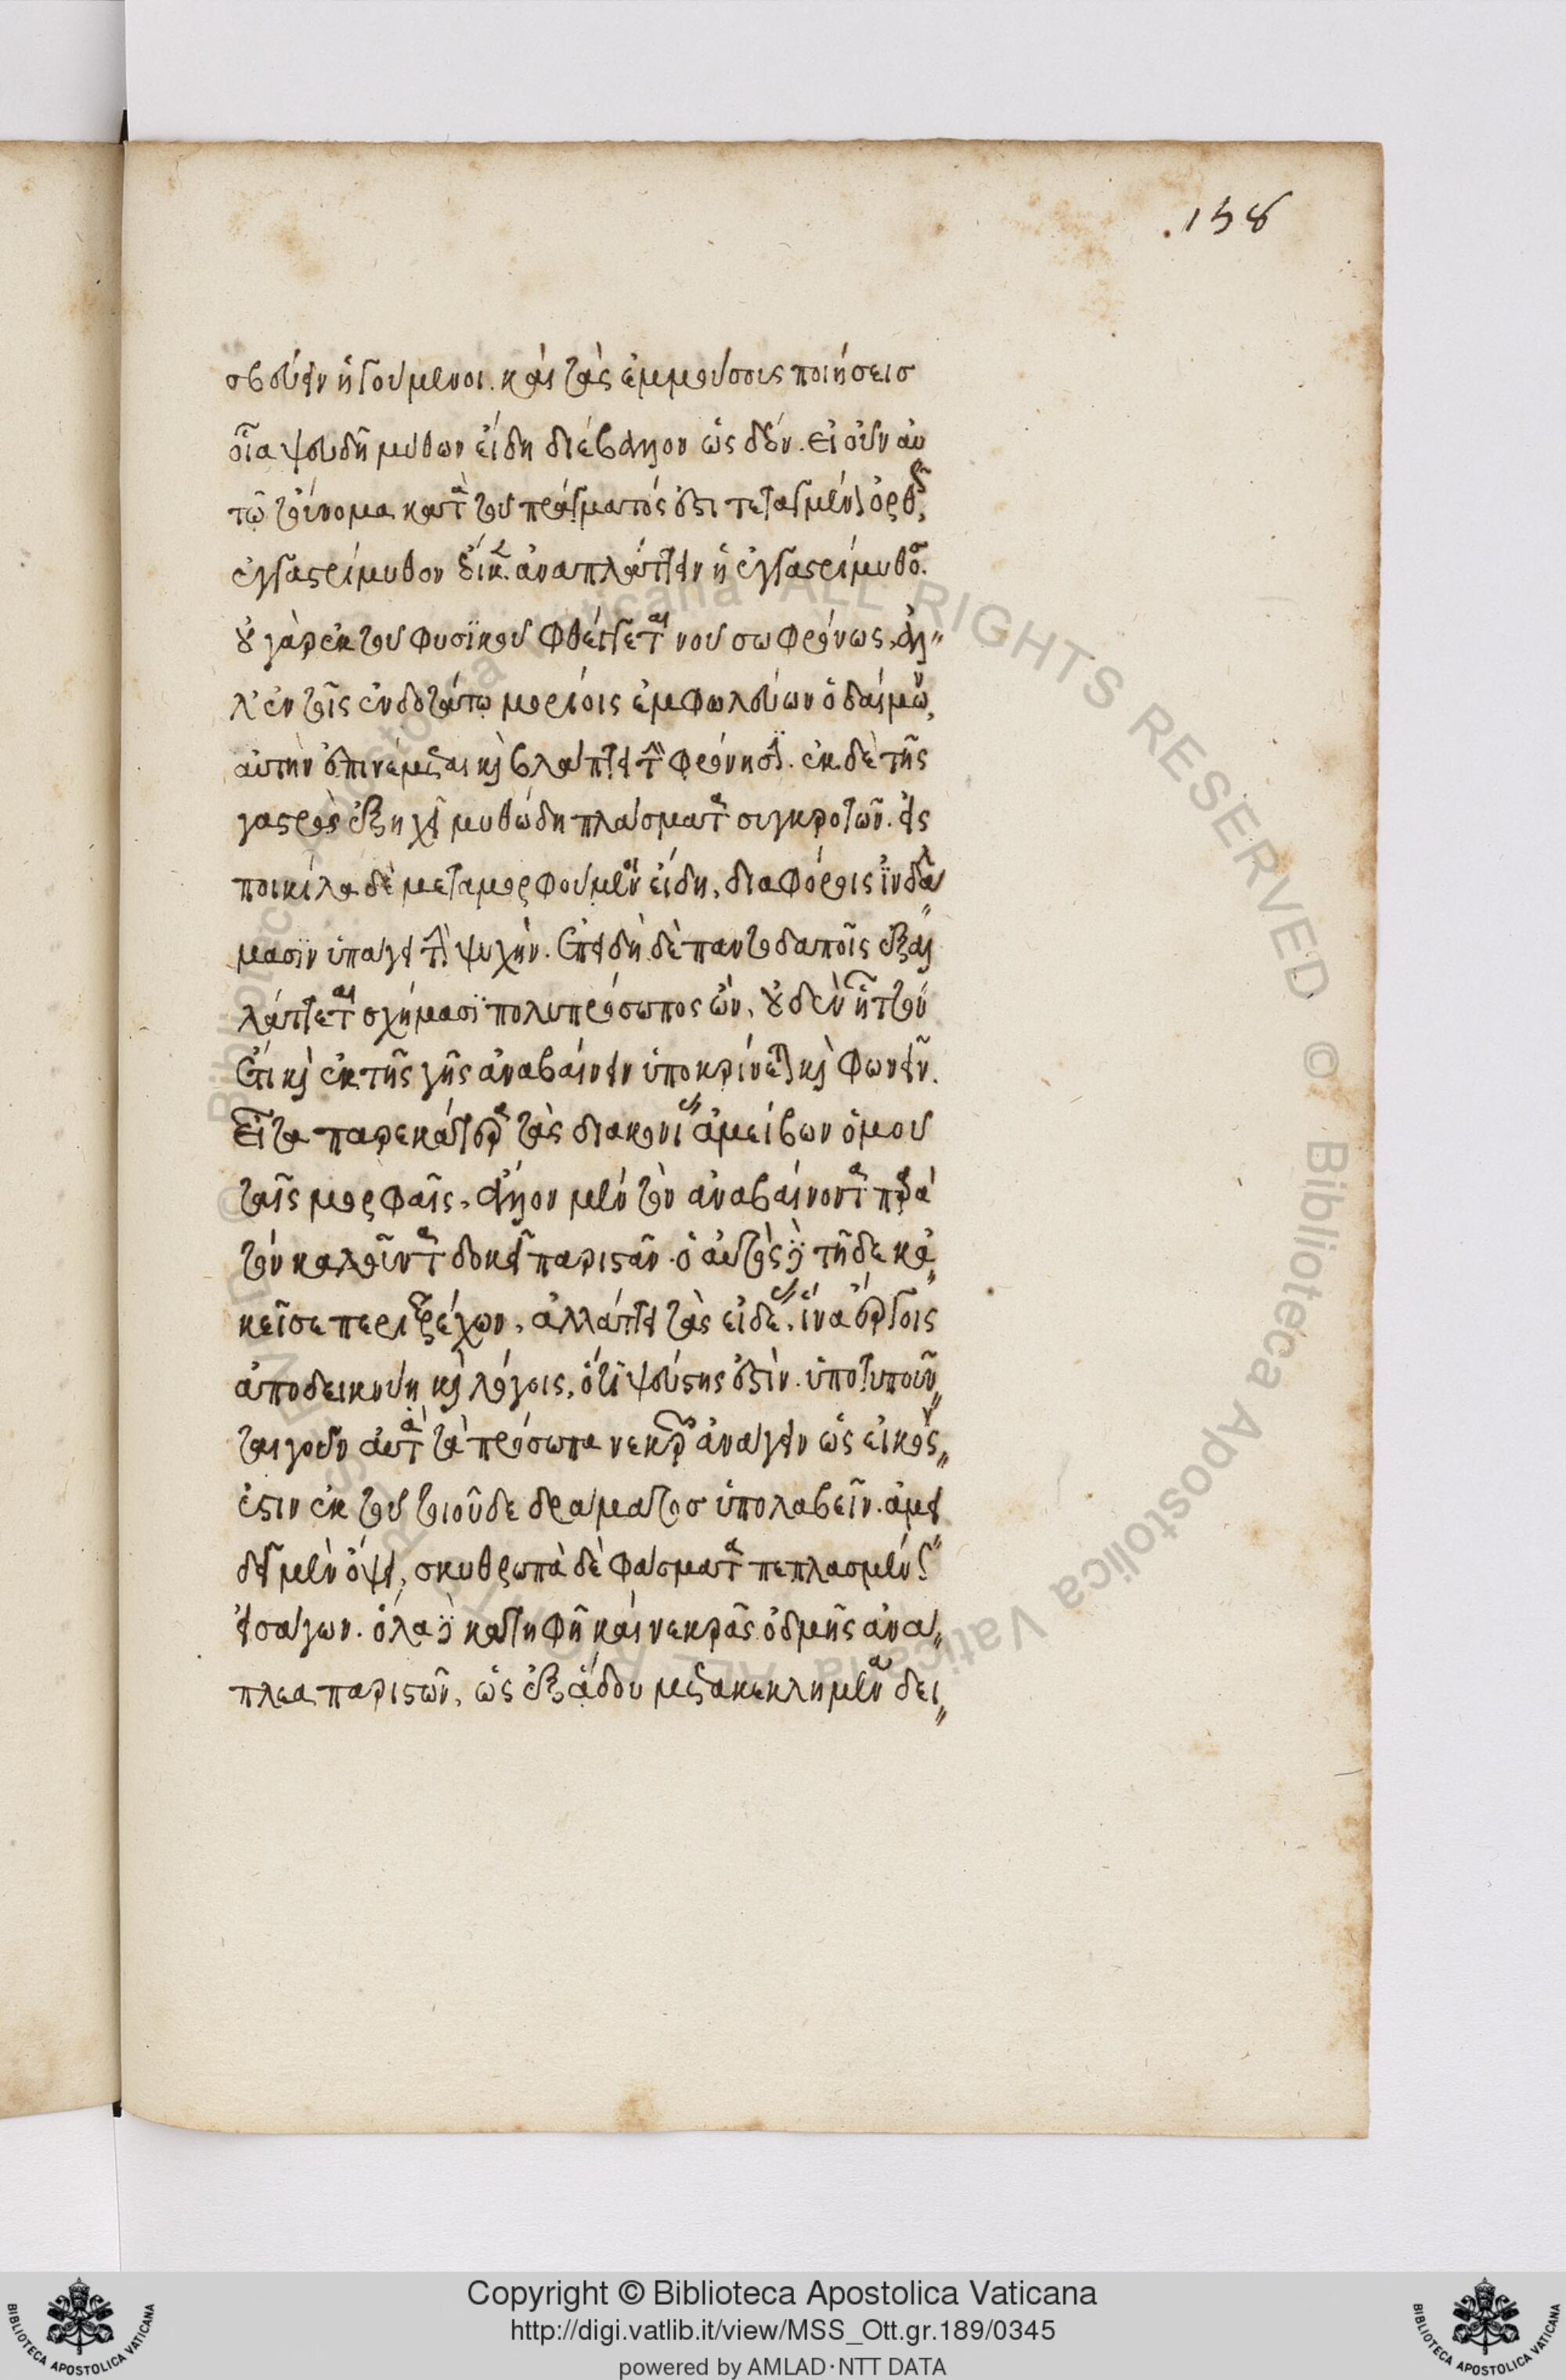 .158
σβεύειν ἡγούμενοι. καὶ τὰς ἐμμούσοις ποιήσεισ
οἷα ψευδῆ μύθων εἴδη διέβαλλον ὡς δέον. εἰ οὖν αὐ
τῷ τοὔνομα κατὰ τοῦ πράγματός ἐστι τεταγμένον ὀρθῶς,
ἐγγαστρίμυθον ἔοικεν ἀναπλάττειν ἡ ἐγγαστρίμυθος.
οὐ γὰρ ἐκ τοῦ φυσϊκοῦ φθέγγεται νοῦ σωφρόνως, ἀλ
λ' ἐν τοῖς ἐνδοτάτω μορίοις ἐμφωλεύων ὁ δαίμων,
αὐτὴν ἐπινέμεται καὶ βλάπτει τὴν φρόνησιν. ἐκ δὲ τῆς
γαστρὸς ἐξηχεῖ μυθώδη πλάσματα συγκροτῶν. εἰς
ποικίλα δὲ μεταμορφούμενος εἴδη, διαφόροις ἰνδάλ
μασϊν ὑπάγει τὴν ψυχὴν. ἐπειδὴ δὲ παντοδαποῖς ἐξαλ
λάττεται σχήμασϊ πολυπρόσωπος ὤν, οὐδὲν ἧττον
ἔτι καὶ ἐκ τῆς γῆς ἀναβαίνειν ὑποκρίνεται καὶ φωνεῖν.
εἶτα παρεκάτερα τὰς διακονίας ἀμείβων ὁμοῦ
ταῖς μορφαῖς, ἄλλον μὲν τὸν ἀναβαίνοντα παρὰ
τὸν καλοῦντα δοκεῖ παριστᾶν. ὁ αὐτὸς δὲ τῇδε κἀ
κεῖσε περιτρέχων, ἀλλάττει τὰς εἰδέας, ἵνα ἔργοις
ἀποδεικνύῃ καὶ λόγοις, ὅτι ψεύστης ἐστὶν. ὑποτυποῦν
ται γοῦν αὐτὰ τὰ πρόσωπα νεκρῶν ἀνάγειν ὡς εἰκός
ἐστιν ἐκ τοῦ τοιοῦδε δράματοσ ὑπολαβεῖν. ἀμει
δεῖ μὲν ὄψει, σκυθρωπὰ δὲ φάσματα πεπλασμένως
εἰσάγων. ὅλα δὲ κατηφῆ καὶ νεκρᾶς ὀδμῆς ἀνά
πλεα παριστῶν, ὡς ἐξ ᾅδου μετακεκλημένα δει
Copyright © Biblioteca Apostolica Vaticana
http://digi.vatlib.it/view/MSS_Ott.gr.189/0345
powered by AMLAD·NTT DATA